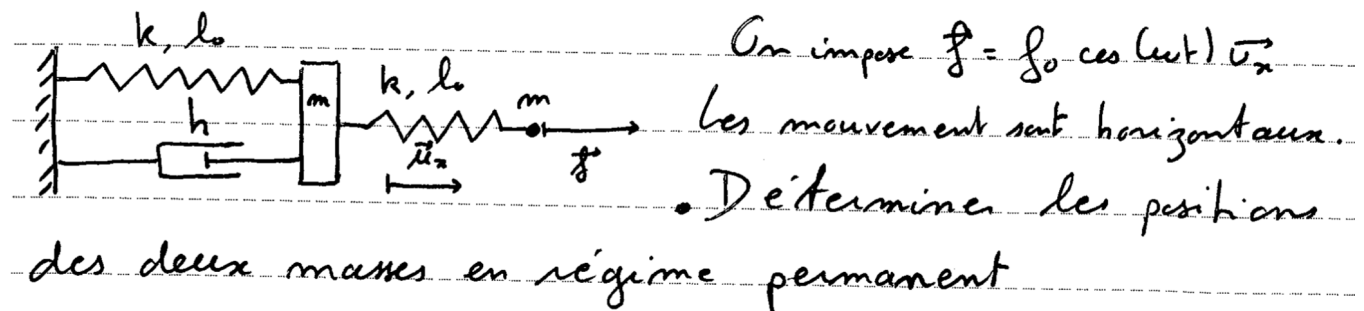 k, l₀
On impose f⃗ = f₀ cos(ωt) u⃗ₓ
m
k, l₀
m
h
Les mouvement sont horizontaux.
u⃗ₓ
f⃗
• Déterminer les positions
des deux masses en régime permanent